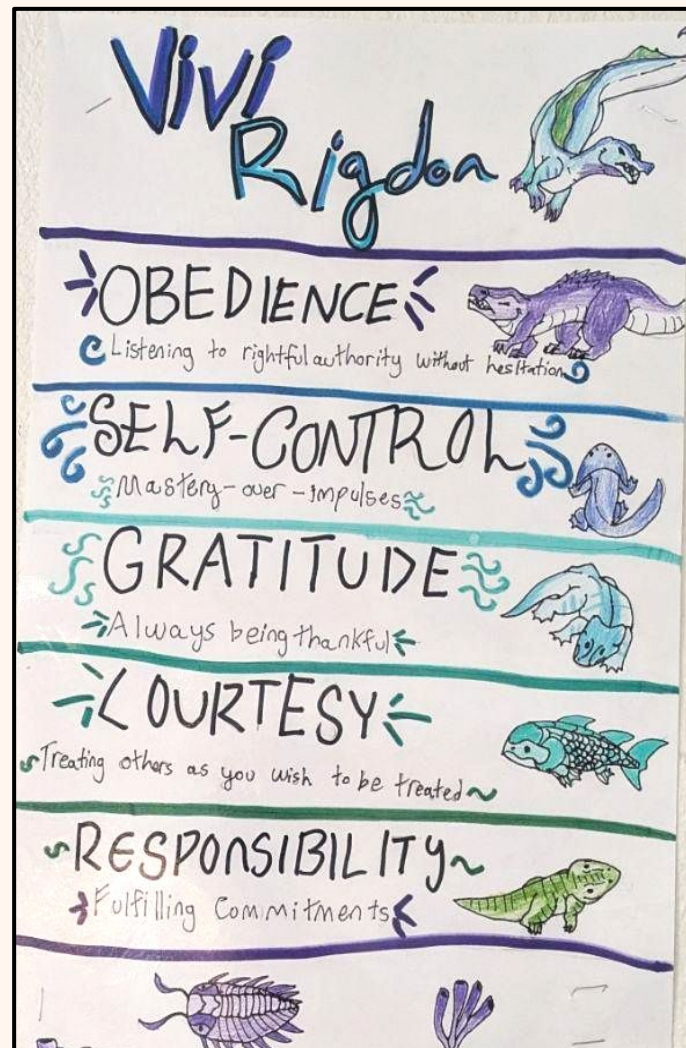 Vivi
Rigdon
OBEDIENCE
Listening to rightful authority without hesitation
SELF-CONTROL
Mastery-over-impulses
GRATITUDE
Always being thankful
COURTESY
Treating others as you wish to be treated
RESPONSIBILITY
Fulfilling Commitments